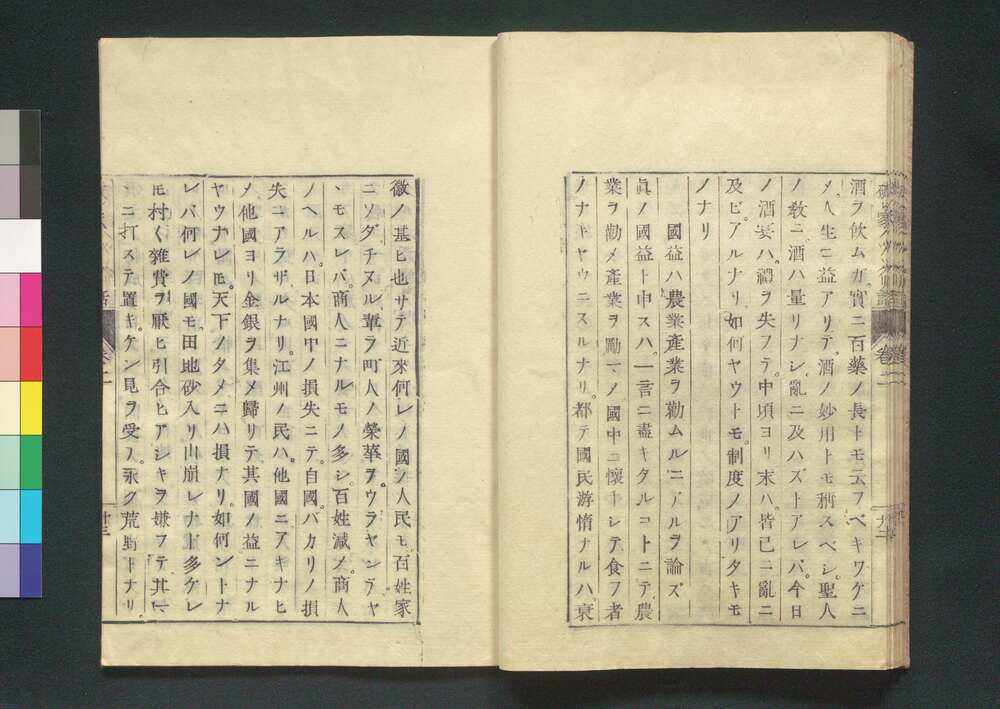 酒ヲ飲ムガ。實ニ百藥ノ長トモ云フベキワケニ
メ。人生ニ益アリテ。酒ノ妙用トモ稱スベシ。聖人
ノ敎ニ酒ハ量リナシ。亂ニ及ハズトアレバ。今日
ノ酒宴ハ。禮ヲ失フテ。中頃ヨリ末ハ。皆已ニ亂ニ
及ビアルナリ如何ヤウトモ。制度ノアリタキモ
ノナリ
國益ハ農業產業ヲ勸ムルニアルヲ論ズ
眞ノ國益ト申スハ。一言ニ盡キタルコトニテ農
業ヲ勸メ產業ヲ勵マ乄國中ニ懷手シテ食フ者
ノナキヤウニスルナリ。都テ國民游惰ナルハ衰
卷二
廿三
徵ノ基ヒ也サテ近來何レノ國ノ人民モ百姓家
ニソダチヌル輩ラ町人ノ榮華ヲ。ウラヤンデヤ
丶モスレバ。商人ニナルモノ多シ。百姓減メ。商人
ノヘルハ。日本國中ノ損失ニテ。自國バカリノ損
失ニアラザルナリ。江州ノ民ハ。他國ニアキナヒ
メ他國ヨリ金銀ヲ集メ歸リテ。其國ノ益ニナル
ヤウナレ𪜈。天下ノタメニハ損ナリ。如何ントナ
レバ何レノ國モ。田地砂入リ山崩レナト多ケレ
𪜈村々雜費ヲ厭ヒ引合ヒアシキヲ嫌フテ其丶
丶ニ打ステ置キ。ケン見ヲ受ケ。永ク荒野トナリ